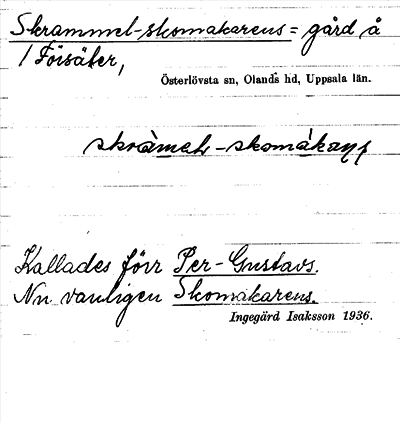 Skrammel-skomakarens = gård å
/ Försäter,
Österlövsta sn, Olands hd, Uppsala län.
Kallades förr Per-Gustavs.
Nu vanligen Skomakarens.
Ingegärd Isaksson 1936.